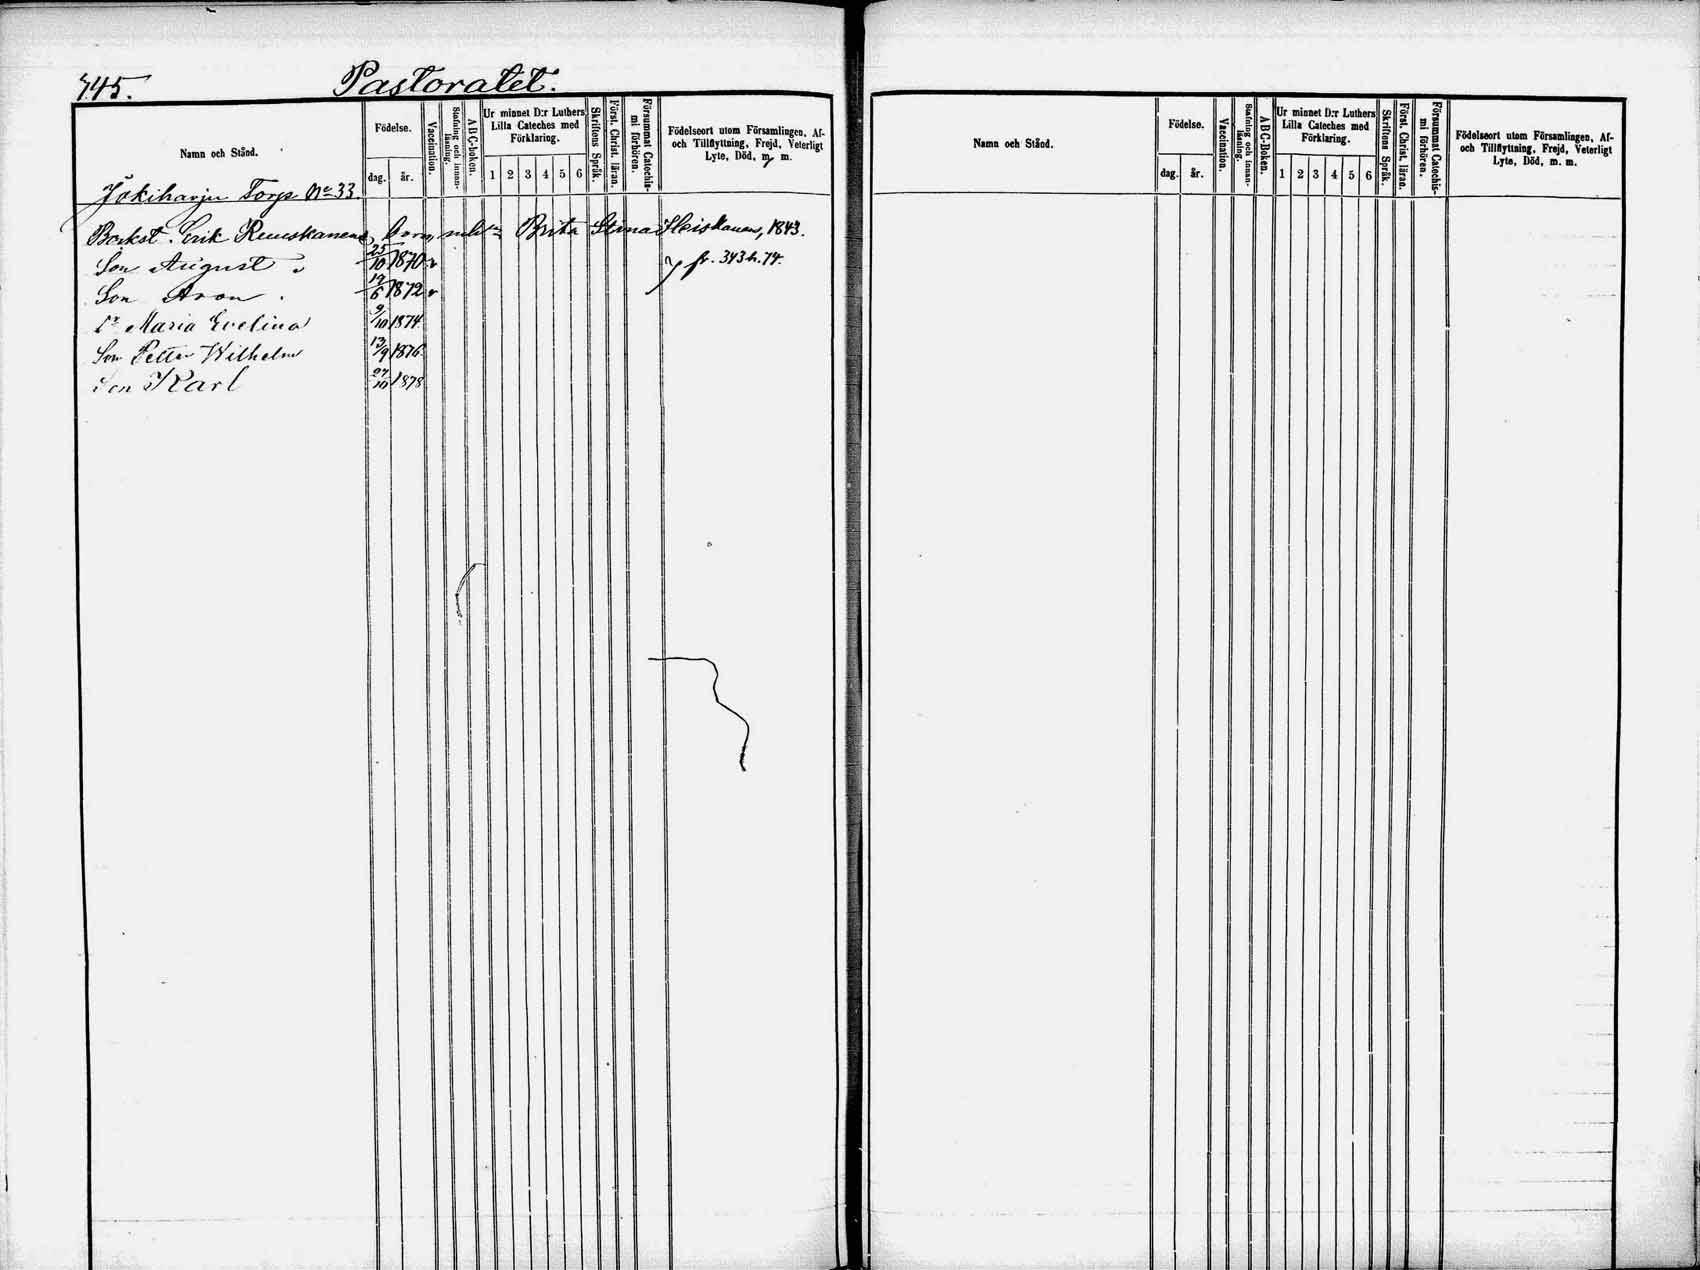 745. Pastoratet.
Namn och Stånd.
Födelse.
dag. år.
Vaccination.
Stafning och innan-läsning.
ABC-boken.
Ur minnet D:r Luthers Lilla Cateches med Förklaring.
1 2 3 4 5 6
Skriftens Språk.
Först. Christ. läran.
Försummat Catechis-mi förhören.
Födelseort utom Församlingen, Af- och Tillflyttning, Frejd, Veterligt Lyte, Död, m. m.
Jokiharju Torp No 33.
Backst. Erik Reuskanens barn, Brita Stina Heiskanen, 1843.
Son August 25/10 1870 fr. 343 h. 74.
Son Aron 19/6 1872
Dr Maria Evelina 9/10 1874
Son Petter Wilhelm 13/9 1876
Son Karl 27/10 1878
Namn och Stånd.
Födelse.
dag. år.
Vaccination.
Stafning och innan-läsning.
ABC-Boken.
Ur minnet D:r Luthers Lilla Cateches med Förklaring.
1 2 3 4 5 6
Skriftens Språk.
Först. Christ. läran.
Försummat Catechis-mi förhören.
Födelseort utom Församlingen, Af- och Tillflyttning, Frejd, Veterligt Lyte, Död, m. m.